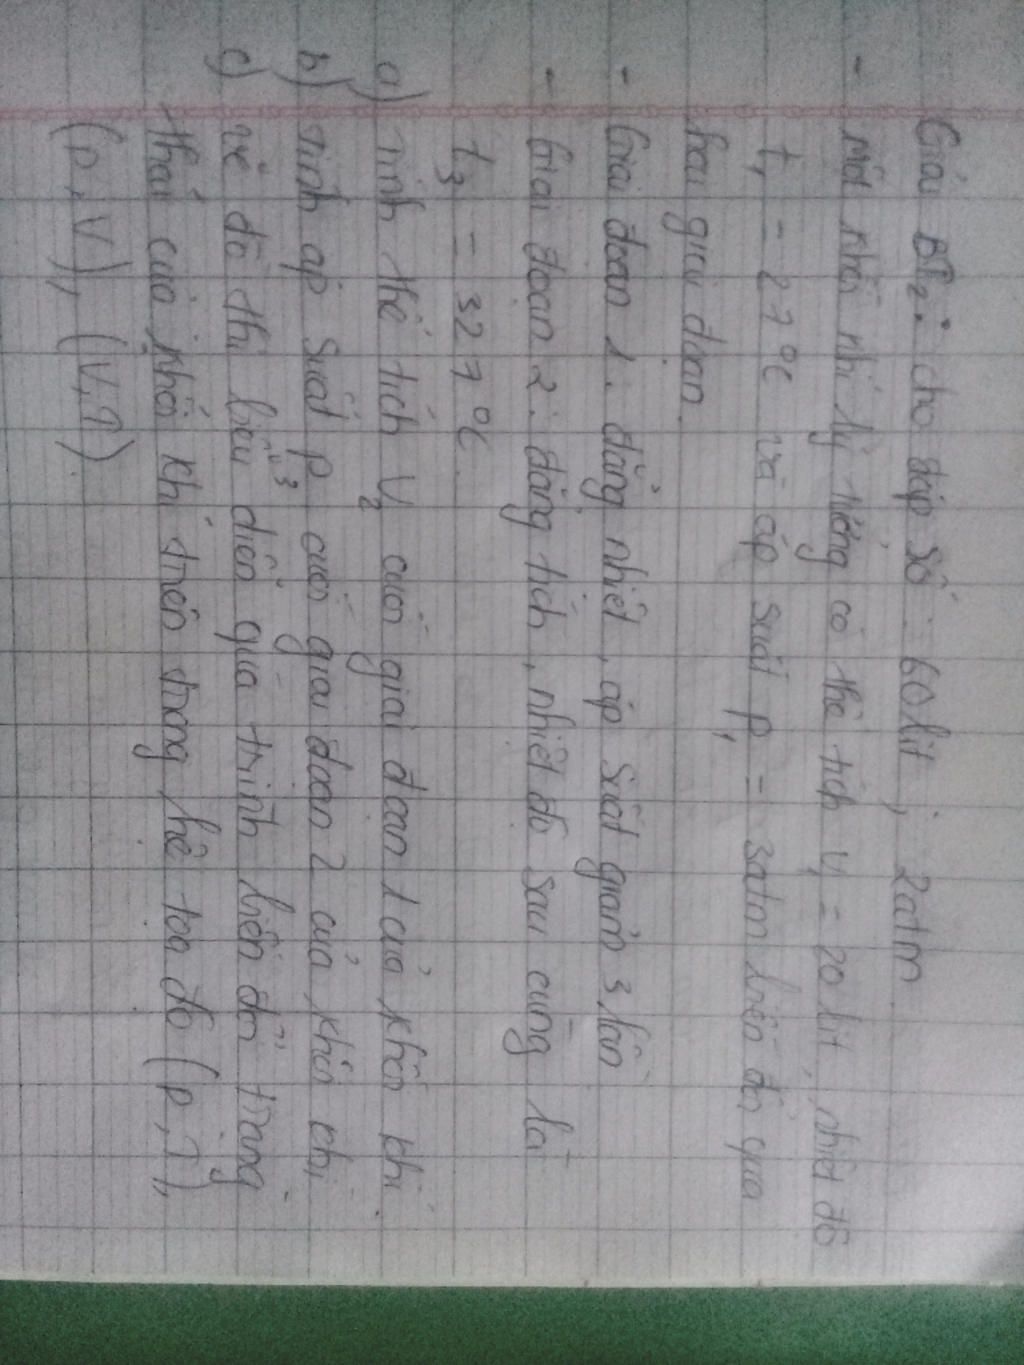 Giải BT2: cho đáp số: 60 lit; 2atm
- Một khối khí lý tưởng có thể tích V₁ = 20 lit, nhiệt độ
t₁ = 27°C và áp suất p₁ = 3atm biến đổi qua
hai giai đoạn.
- Giai đoạn 1: đẳng nhiệt, áp suất giảm 3 lần
- Giai đoạn 2: đẳng tích, nhiệt độ sau cùng là
t₃ = 327°C.
a) Tính thể tích V₂ cuối giai đoạn 1 của khối khí.
b) Tính áp suất p₃ cuối giai đoạn 2 của khối khí.
c) vẽ đồ thị biểu diễn quá trình biến đổi trạng
thái của khối khí trên trong hệ toạ độ (p,T),
(p,V), (V,T).